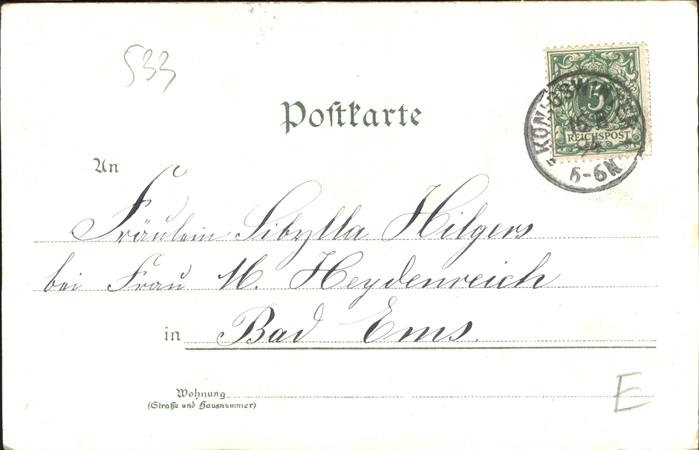 533
Postkarte
5
REICHSPOST
KÖNIGSWINTER
5-6N
An
Fräulein Sibylla Hilgers
bei Frau M. Heydenreich
in Bad Ems.
Wohnung
(Straße und Hausnummer)
E